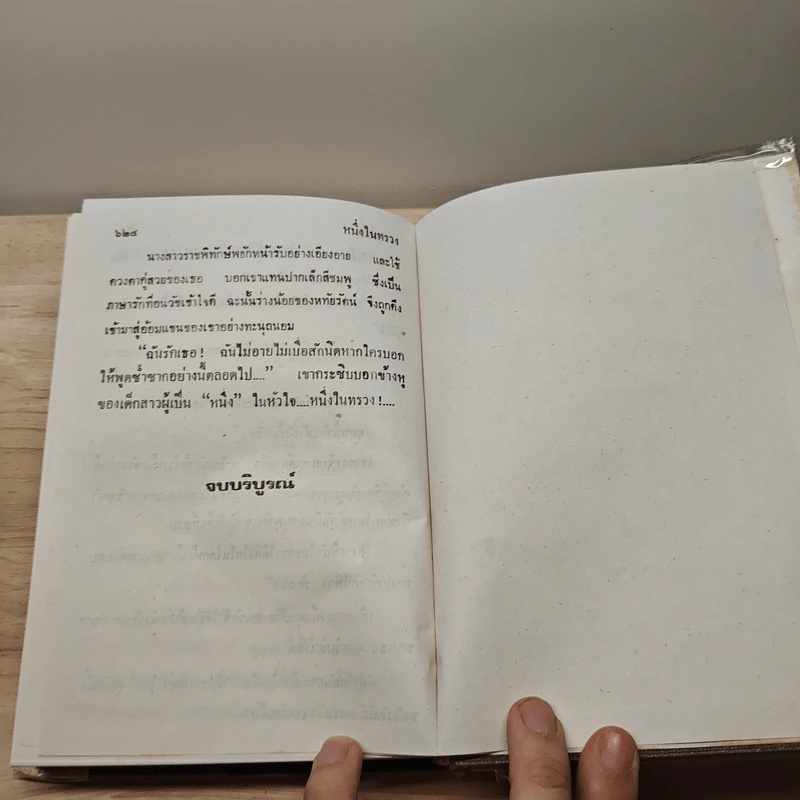 ๖๒๔ หนึ่งในทรวง
นางสาวราชพิทักษ์พยักหน้ารับอย่างเอียงอาย และใช้
ดวงตาคู่สวยของเธอ บอกเขาแทนปากเล็กสีชมพู ซึ่งเป็น
ภาษารักที่อนวัชเข้าใจดี ฉะนั้นร่างน้อยของหทัยรัตน์ จึงถูกดึง
เข้ามาสู่อ้อมแขนของเขาอย่างทะนุถนอม
“ฉันรักเธอ! ฉันไม่อายไม่เบื่อสักนิดหากใครบอก
ให้พูดซ้ำซากอย่างนี้ตลอดไป....” เขากระซิบบอกข้างหู
ของเด็กสาวผู้เป็น “หนึ่ง” ในหัวใจ....หนึ่งในทรวง!....
จบบริบูรณ์